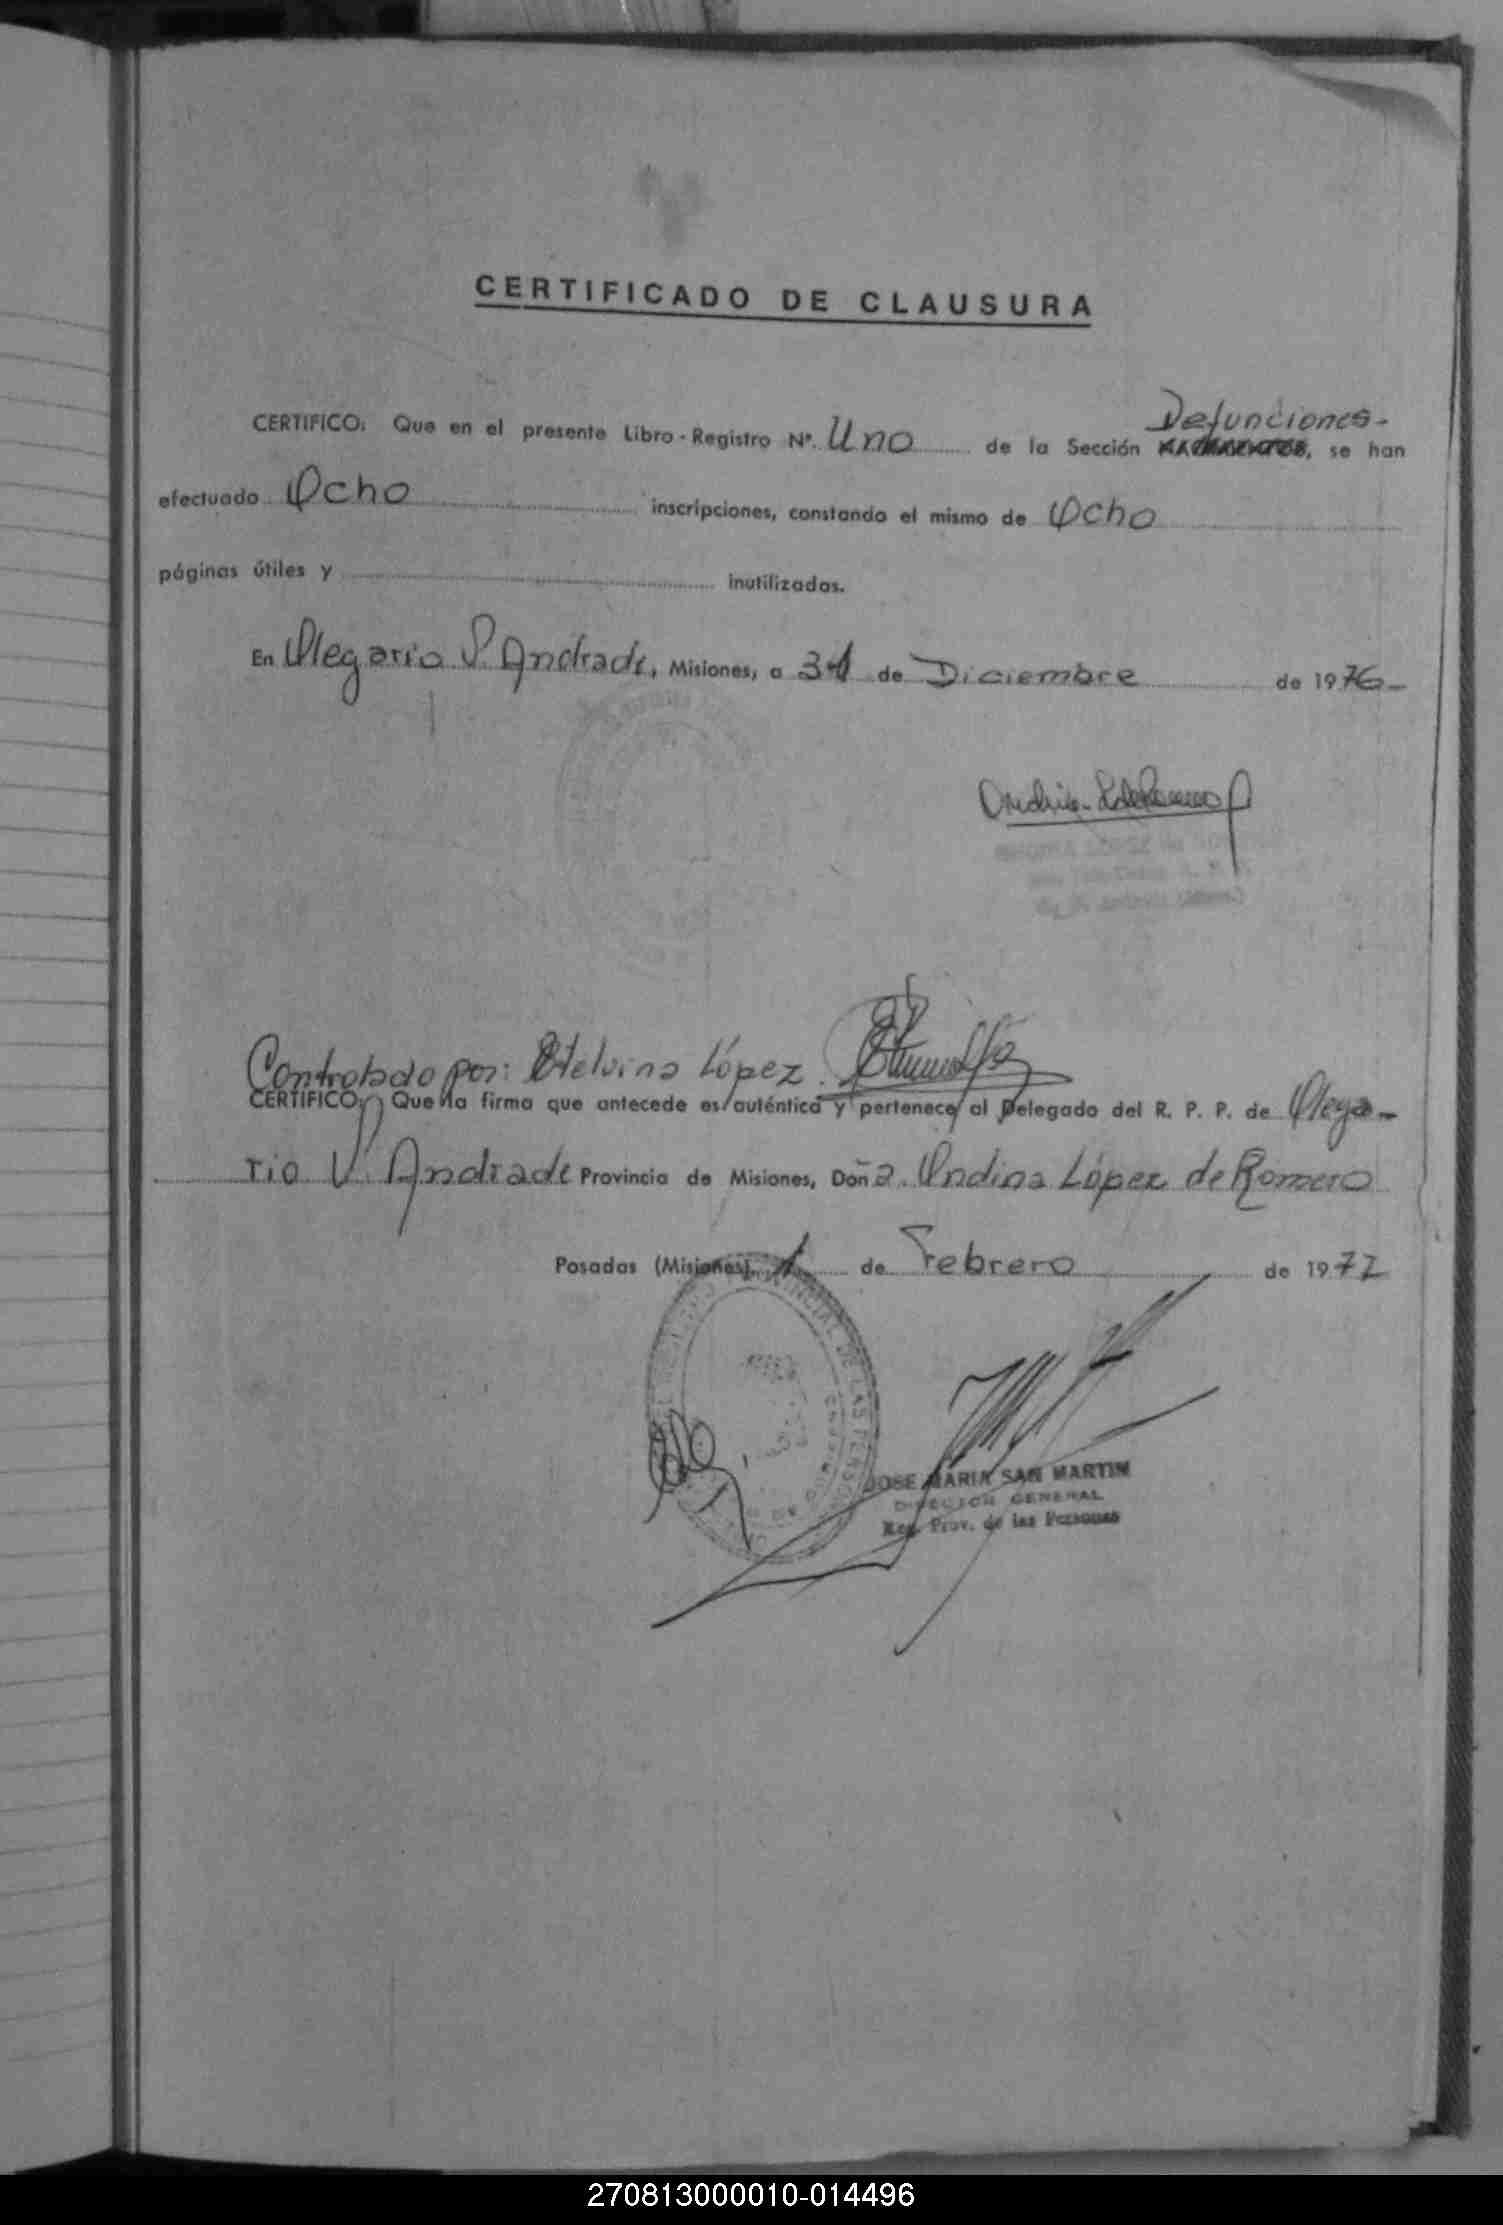 CERTIFICADO DE CLAUSURA
Defunciones.-
CERTIFICO: Que en el presente Libro-Registro Nº. Uno de la Sección NACIMIENTOS, se han
efectuado Ocho inscripciones, constando el mismo de Ocho
páginas útiles y inutilizadas.
En Olegario V. Andrade, Misiones, a 31 de Diciembre de 1976-
Controlado por: Etelvina López.
CERTIFICO: Que la firma que antecede es auténtica y pertenece al Delegado del R. P. P. de Olega-
rio V. Andrade Provincia de Misiones, Doña. Ondina López de Romero
Posadas (Misiones), 1 de Febrero de 1977
JOSE MARIA SAN MARTIN
DIRECTOR GENERAL
Reg. Prov. de las Personas
270813000010-014496